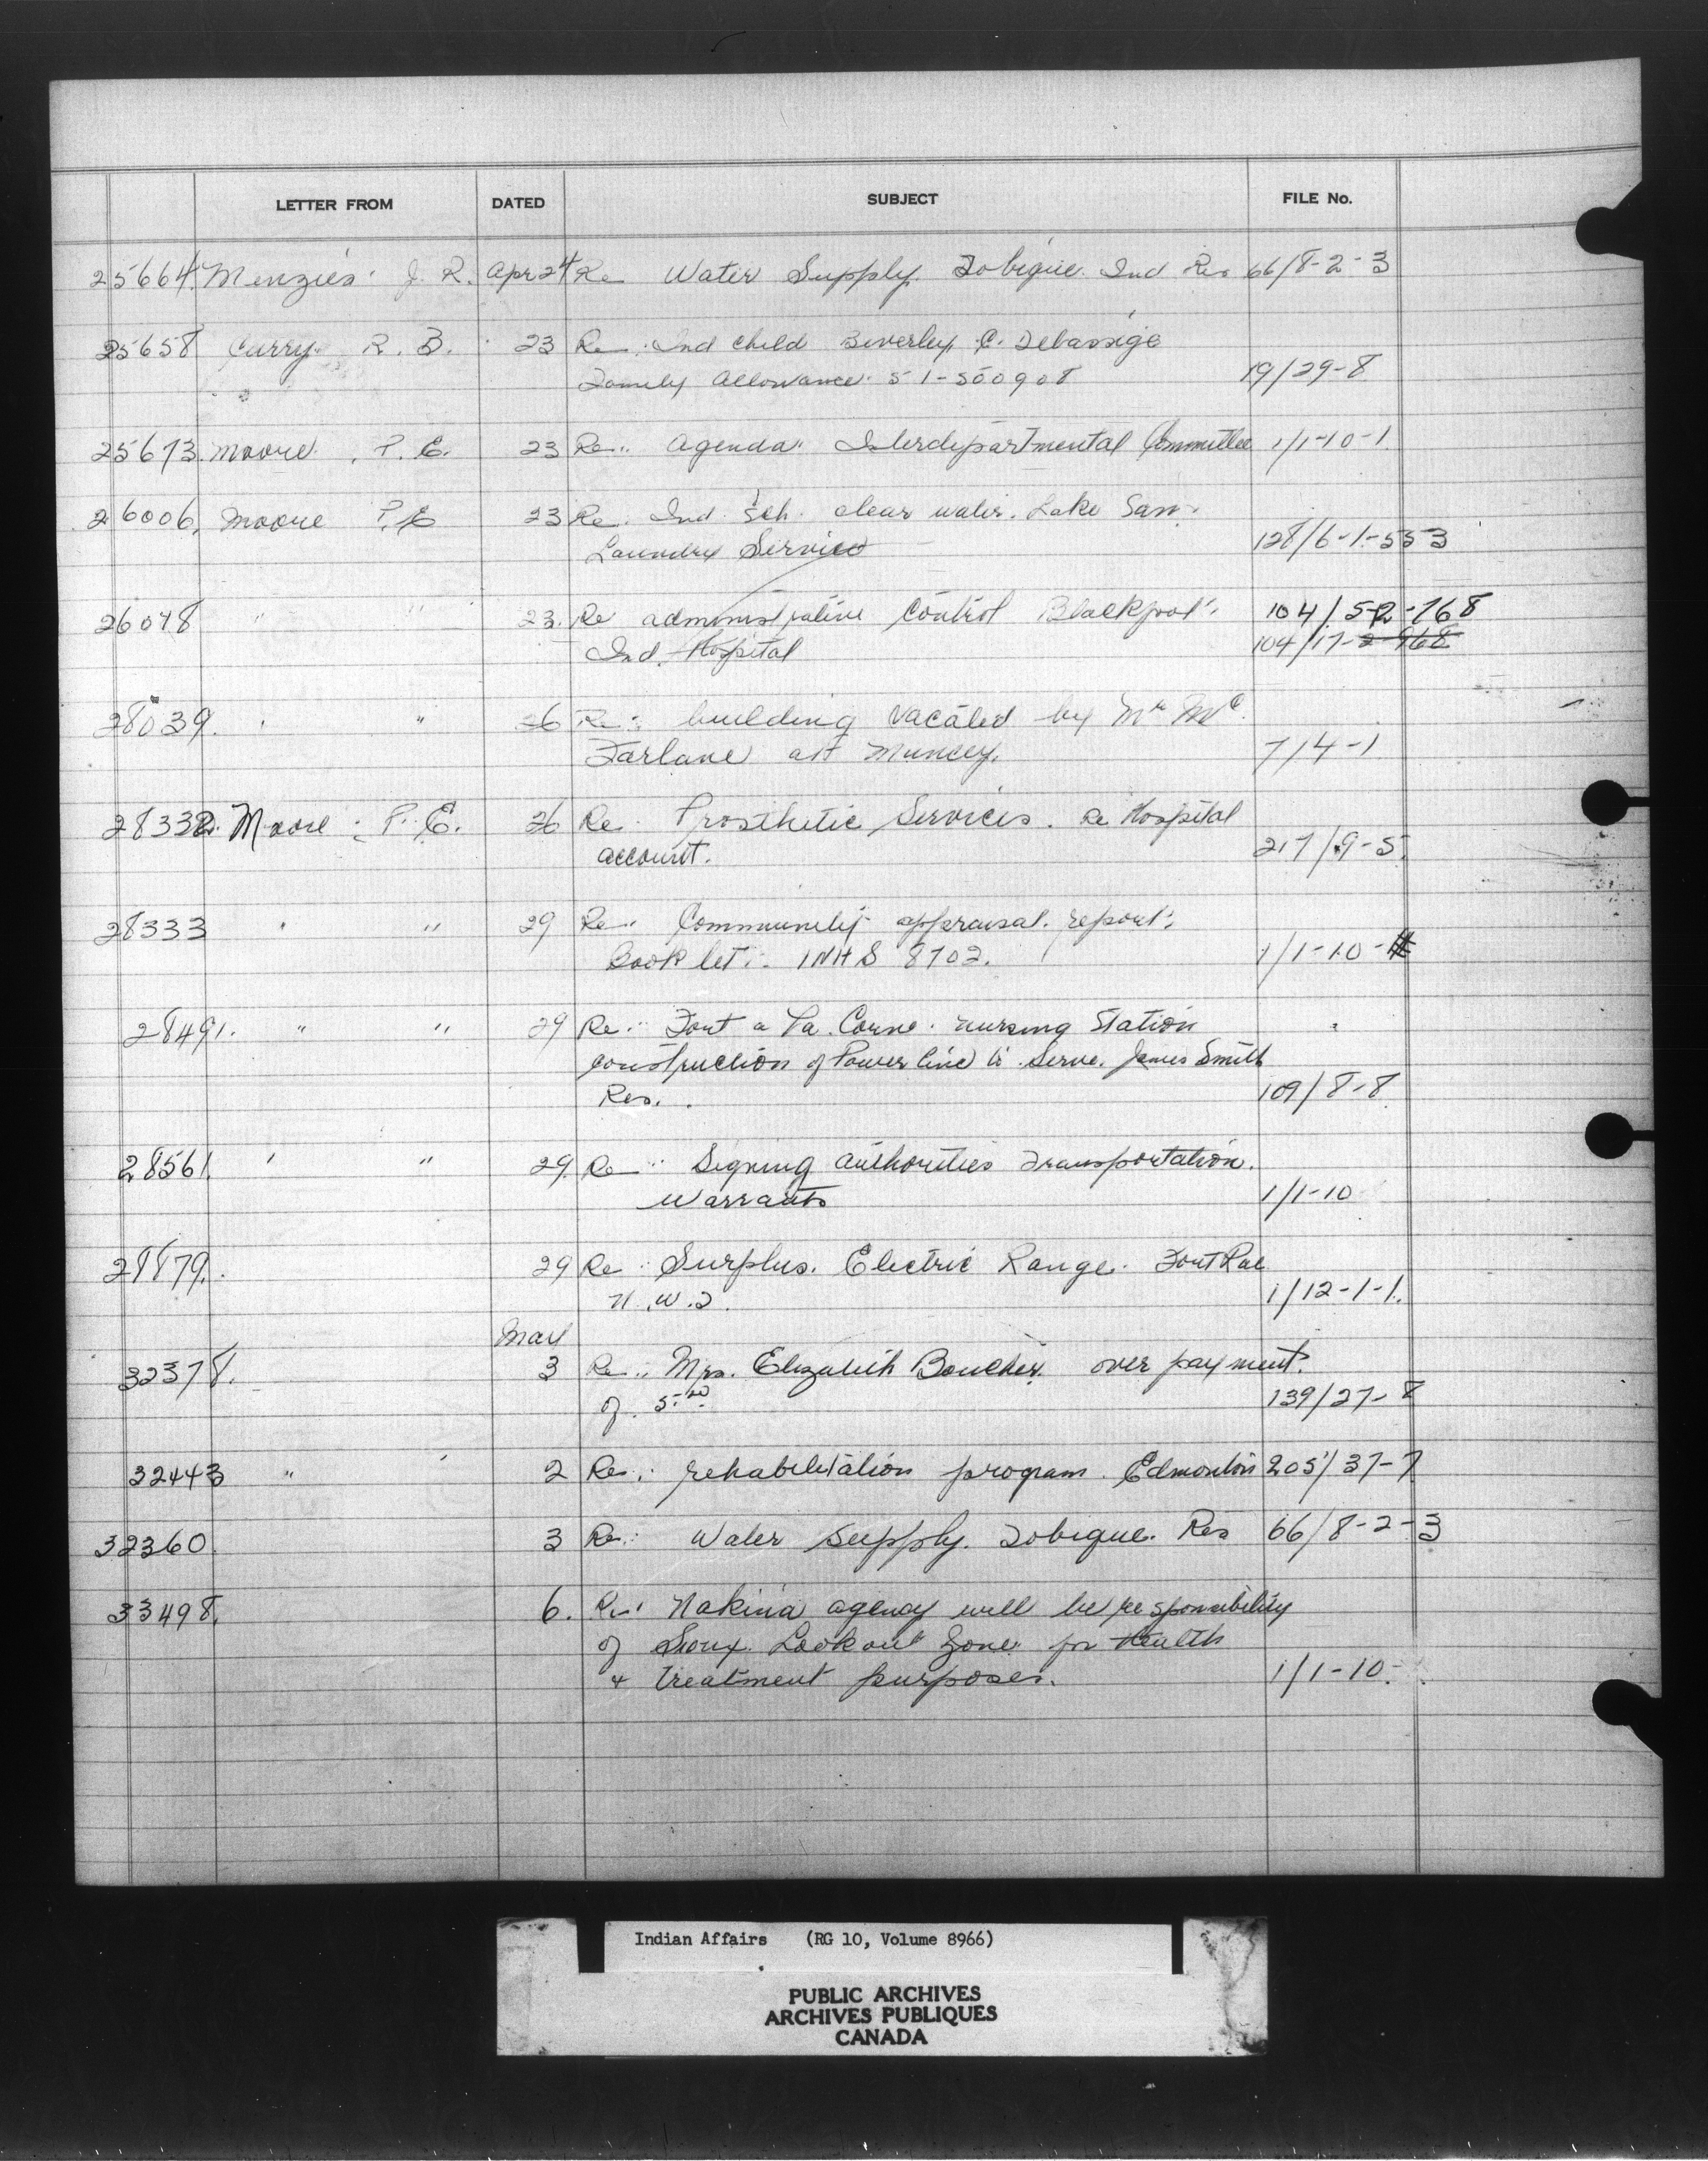 LETTER FROM DATED SUBJECT FILE No.
25664. Menzies. J. R. Apr 24 Re Water Supply. Tobique. Ind Res 66/8-2-3
25658 Curry. R. B. 23 Re: Ind child Beverley C. Debassige
Family Allowance. 51-500908 19/29-8
25673. Moore. P. E. 23 Re: Agenda Interdepartmental Committee 1/1-10-1.
26006. Moore P. E 23 Re. Ind. Sch. clear water. Lake San.
Laundry Service 128/6-1-553
26078 " " 23. Re administrative Control Blackfoot 104/52-768
Ind. Hospital 104/17-2-968
28039. " " 26 Re: building vacated by Mr Mc
Farlane at Muncey. 7/4-1
28332. Moore. P. E. 26 Re Prosthetic Services. Re Hospital
account. 217/9-5.
28333 " " 29 Re: Community appraisal. report.
Booklet: INHS 8702. 1/1-10-
28491. " " 29 Re: Fort a La Corne. nursing Station
construction of Power line to Serve. James Smith
Res. 109/8-8
28561. " " 29. Re: Signing authorities Transportation.
Warrants 1/1-10
28879. 29 Re: Surplus. Electric Range. Fort Rae
N.W.T. 1/12-1-1.
32378. 3 Re: Mrs. Elizabeth Boucher. over payment.
of. 5.00 139/27-8
32443 " " 2 Re: rehabilitation program. Edmonton 205/37-7
32360. 3 Re: Water Supply. Tobique. Res 66/8-2-3
33498. 6. Re: Nakina agency will be responsibility
of Sioux. Lookout Zone for Health
+ treatment purposes. 1/1-10.
Indian Affairs (RG 10, Volume 8966)
PUBLIC ARCHIVES
ARCHIVES PUBLIQUES
CANADA